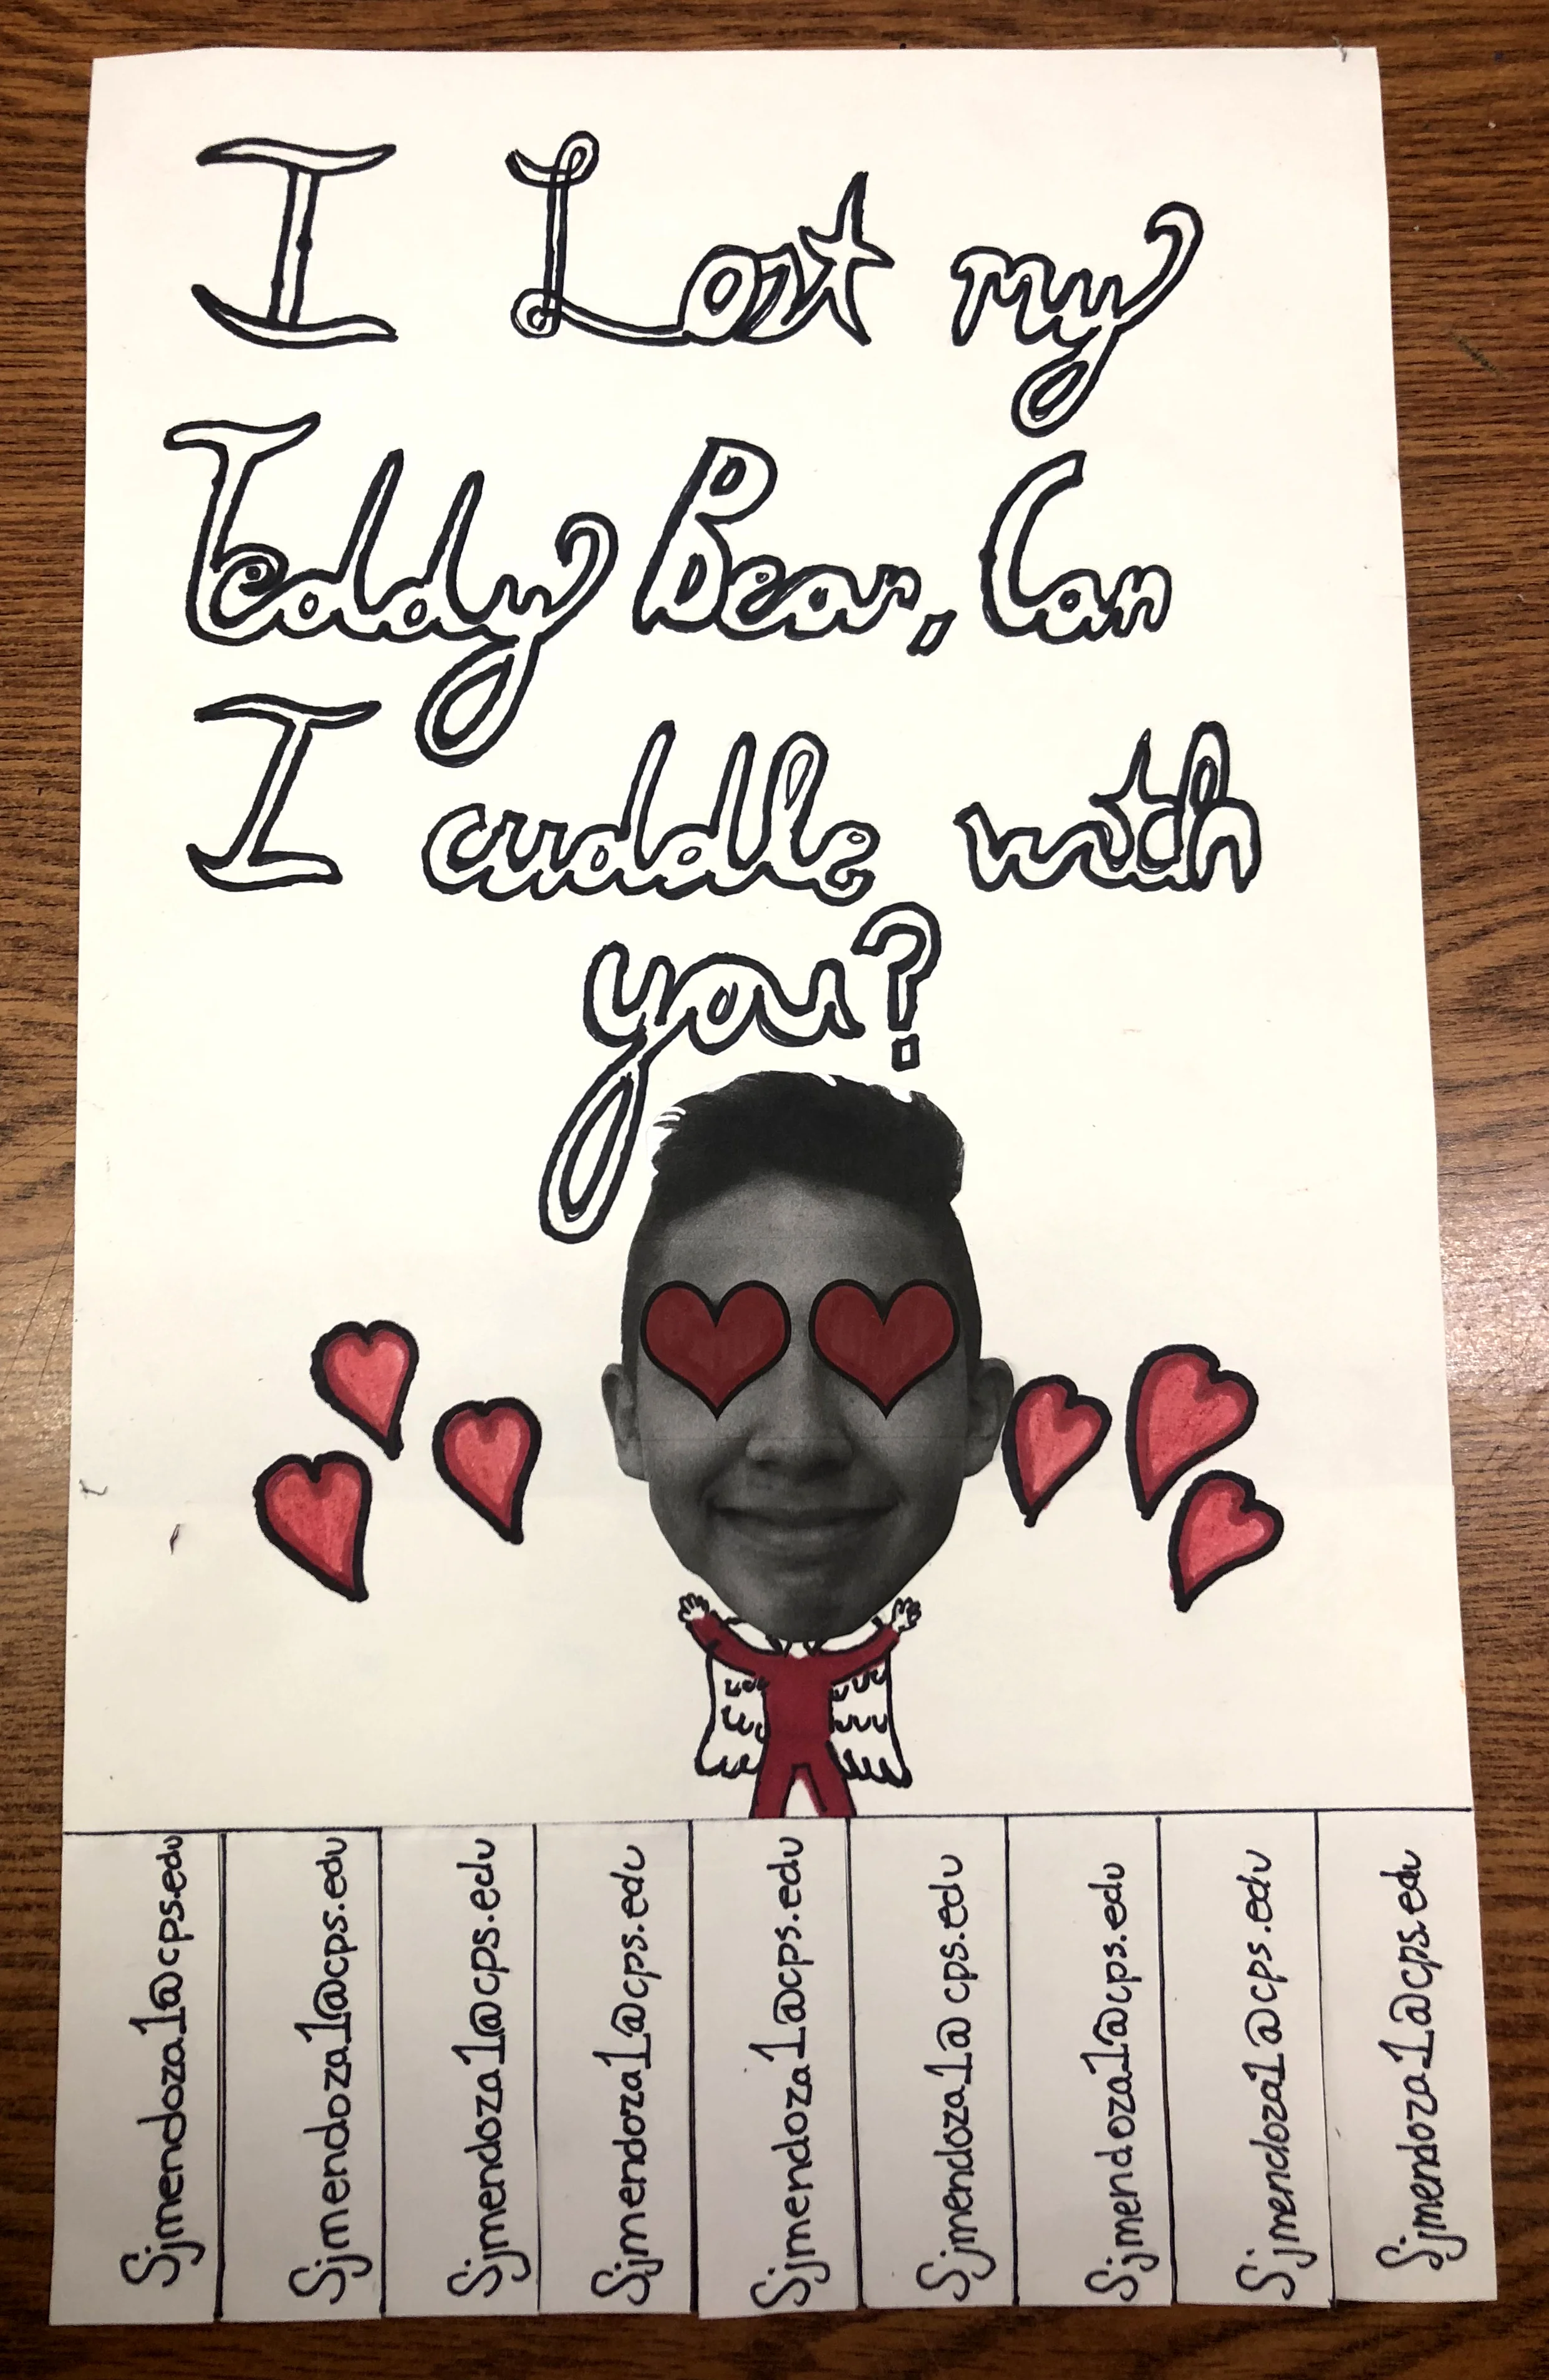 I Lost my
Teddy Bear, Can
I cuddle with
you?
Sjmendoza1@cps.edu
Sjmendoza1@cps.edu
Sjmendoza1@cps.edu
Sjmendoza1@cps.edu
Sjmendoza1@cps.edu
Sjmendoza1@cps.edu
Sjmendoza1@cps.edu
Sjmendoza1@cps.edu
Sjmendoza1@cps.edu